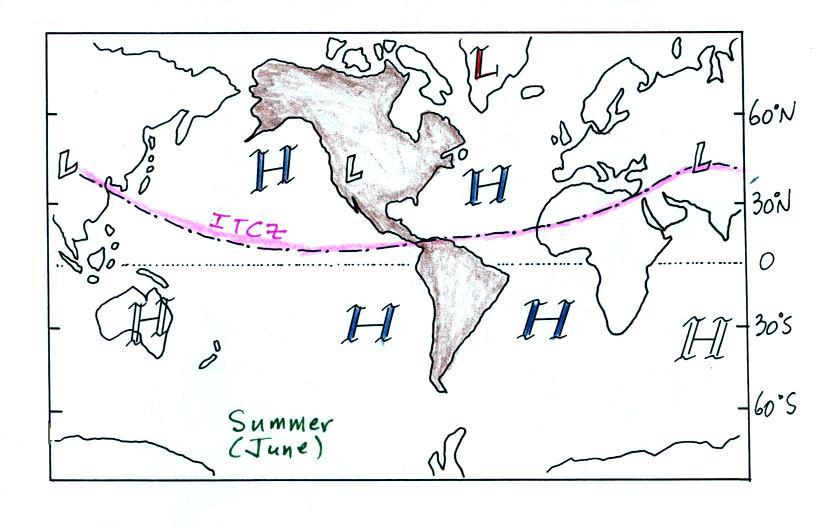 L
60°N
L
H
L
H
L
30°N
ITCZ
0
H
H
H
H
30°S
60°S
Summer
(June)